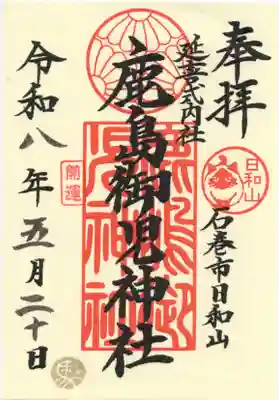 奉拝
延喜式内社
日和山
石巻市日和山
鹿島御児神社
開運
令和八年五月二十日